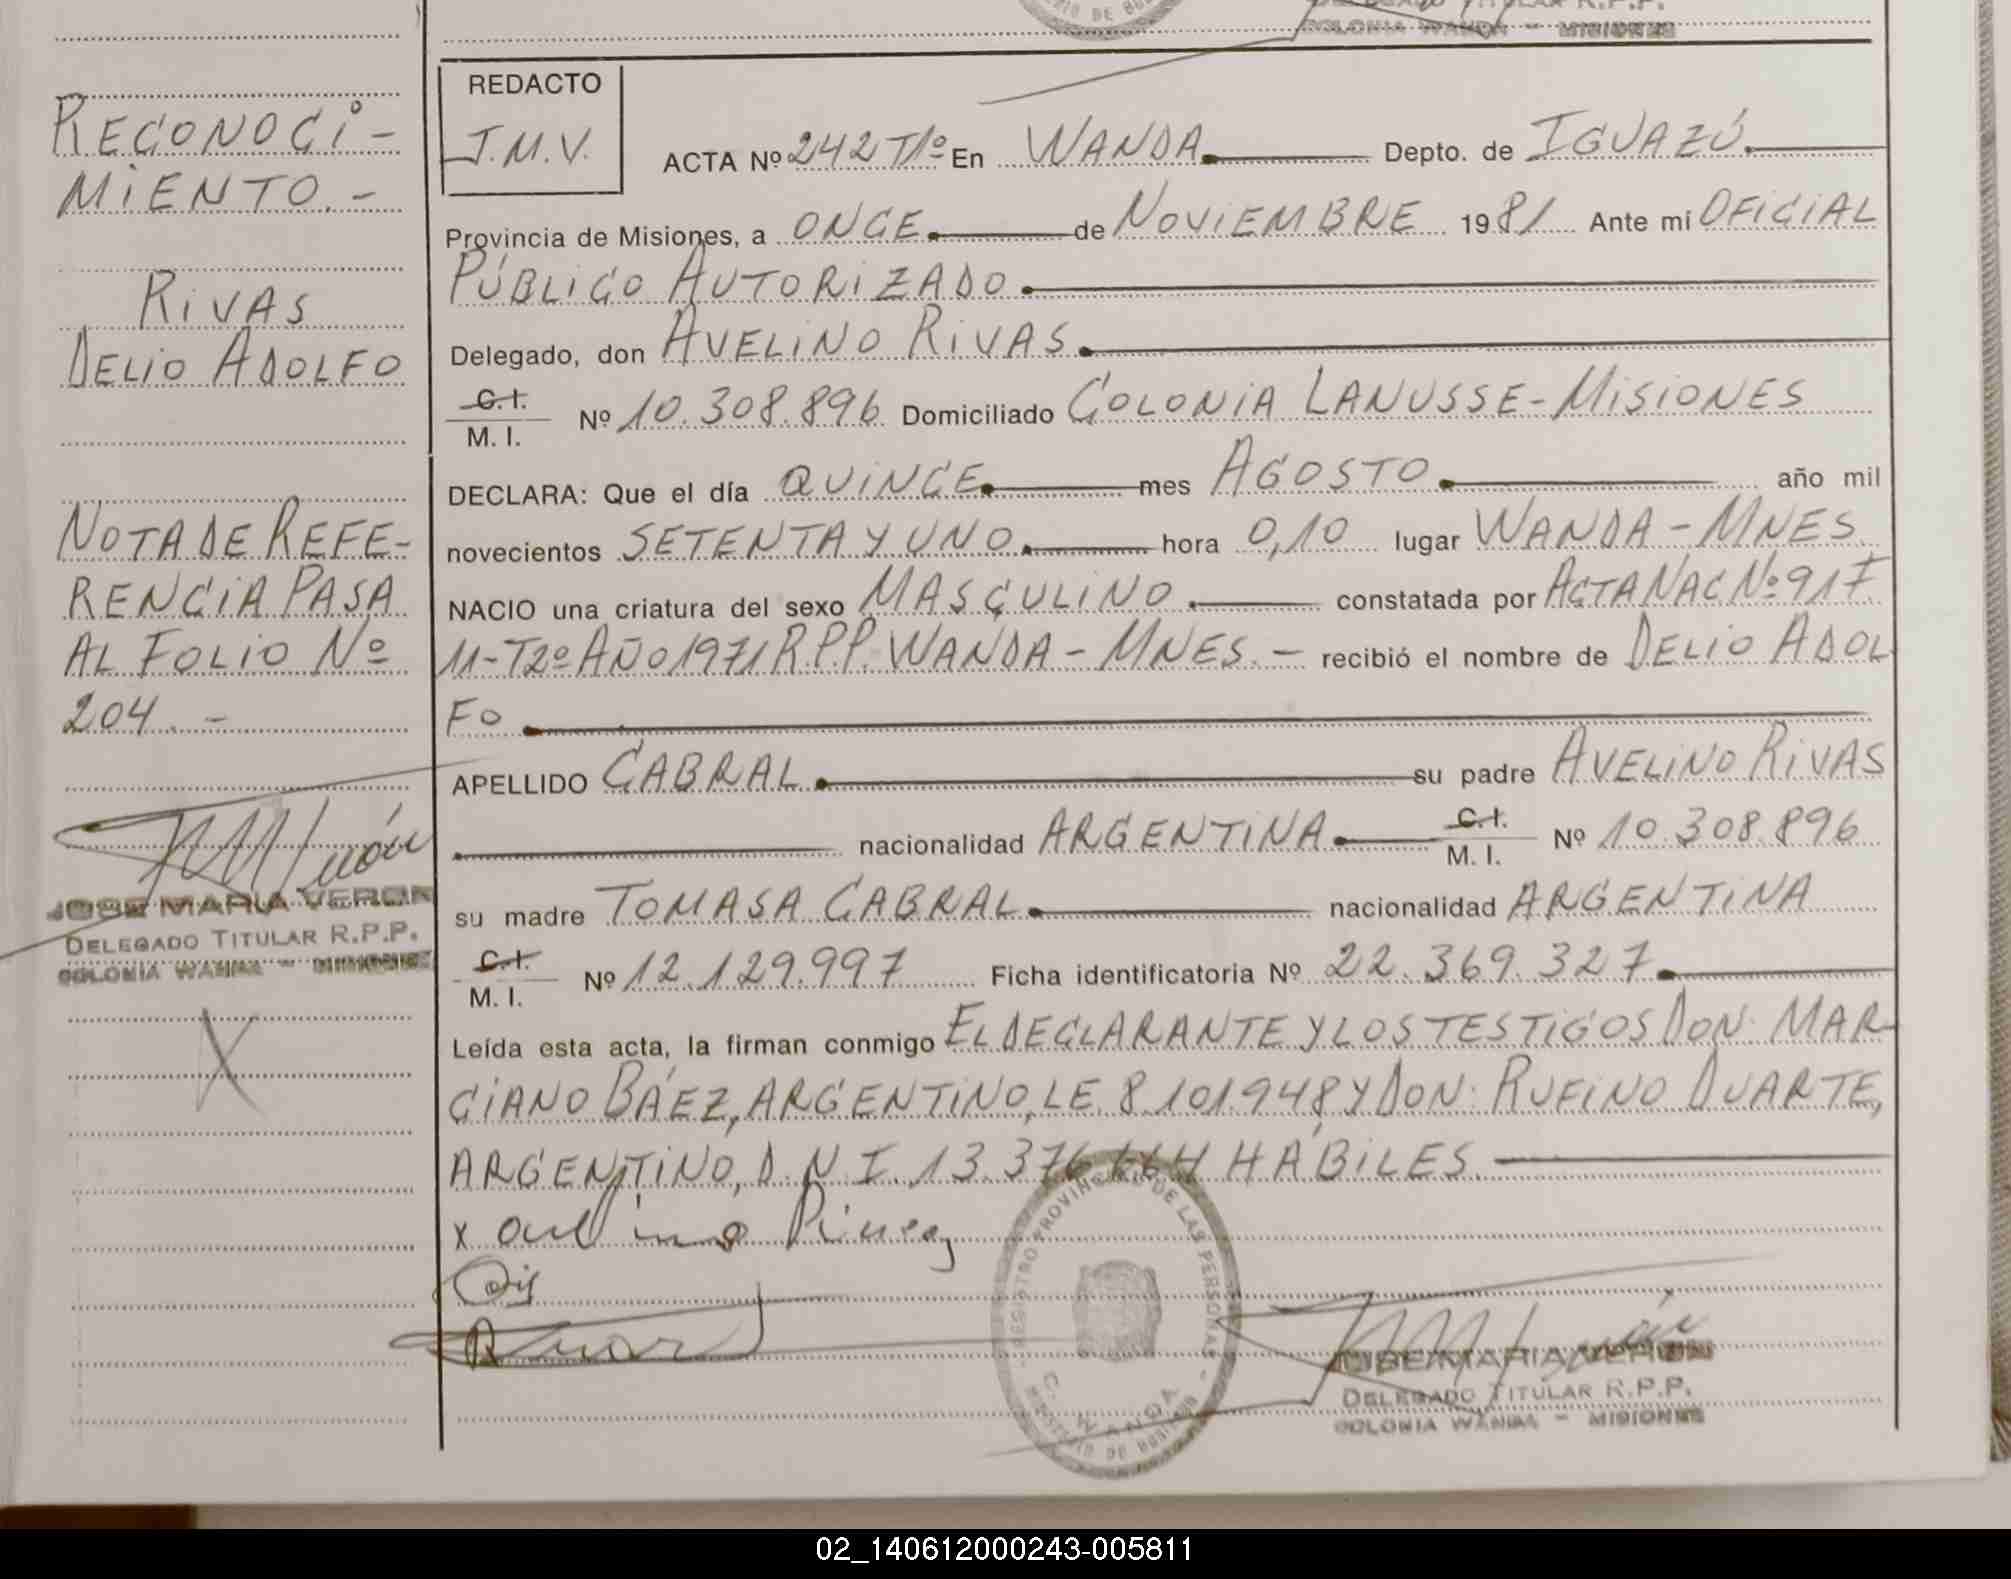 COLONIA WANDA - MISIONES
RECONOCI-
MIENTO.-
RIVAS
DELIO ADOLFO
NOTA DE REFE-
RENCIA PASA
AL FOLIO Nº
204.-
JOSE MARIA VERON
DELEGADO TITULAR R.P.P.
COLONIA WANDA - MISIONES
X
REDACTO
J.M.V.
ACTA Nº 242 T1º En WANDA. Depto. de IGUAZÚ.
Provincia de Misiones, a ONCE. de NOVIEMBRE 1981 Ante mí OFICIAL
PÚBLICO AUTORIZADO.
Delegado, don AVELINO RIVAS.
C.I.
M.I. Nº 10.308.896 Domiciliado COLONIA LANUSSE-MISIONES
DECLARA: Que el día QUINCE. mes AGOSTO. año mil
novecientos SETENTA Y UNO. hora 0,10 lugar WANDA-MNES
NACIO una criatura del sexo MASCULINO. constatada por ACTA NAC Nº 91 F.
11-T2º AÑO 1971 R.P.P. WANDA-MNES.- recibió el nombre de DELIO ADOL
FO.
APELLIDO CABRAL. su padre AVELINO RIVAS
nacionalidad ARGENTINA. C.I.
M.I. Nº 10.308.896
su madre TOMASA CABRAL. nacionalidad ARGENTINA
C.I.
M.I. Nº 12.129.997 Ficha identificatoria Nº 22.369.327.
Leída esta acta, la firman conmigo EL DECLARANTE Y LOS TESTIGOS DON: MAR-
CIANO BÁEZ, ARGENTINO, LE. 8.101.948 Y DON: RUFINO DUARTE,
ARGENTINO, D.N.I. 13.376.664 HÁBILES.
x
REGISTRO PROVINCIAL DE LAS PERSONAS
C. WANDA
MINISTERIO DE GOBIERNO
JOSE MARIA VERON
DELEGADO TITULAR R.P.P.
COLONIA WANDA - MISIONES
02_140612000243-005811